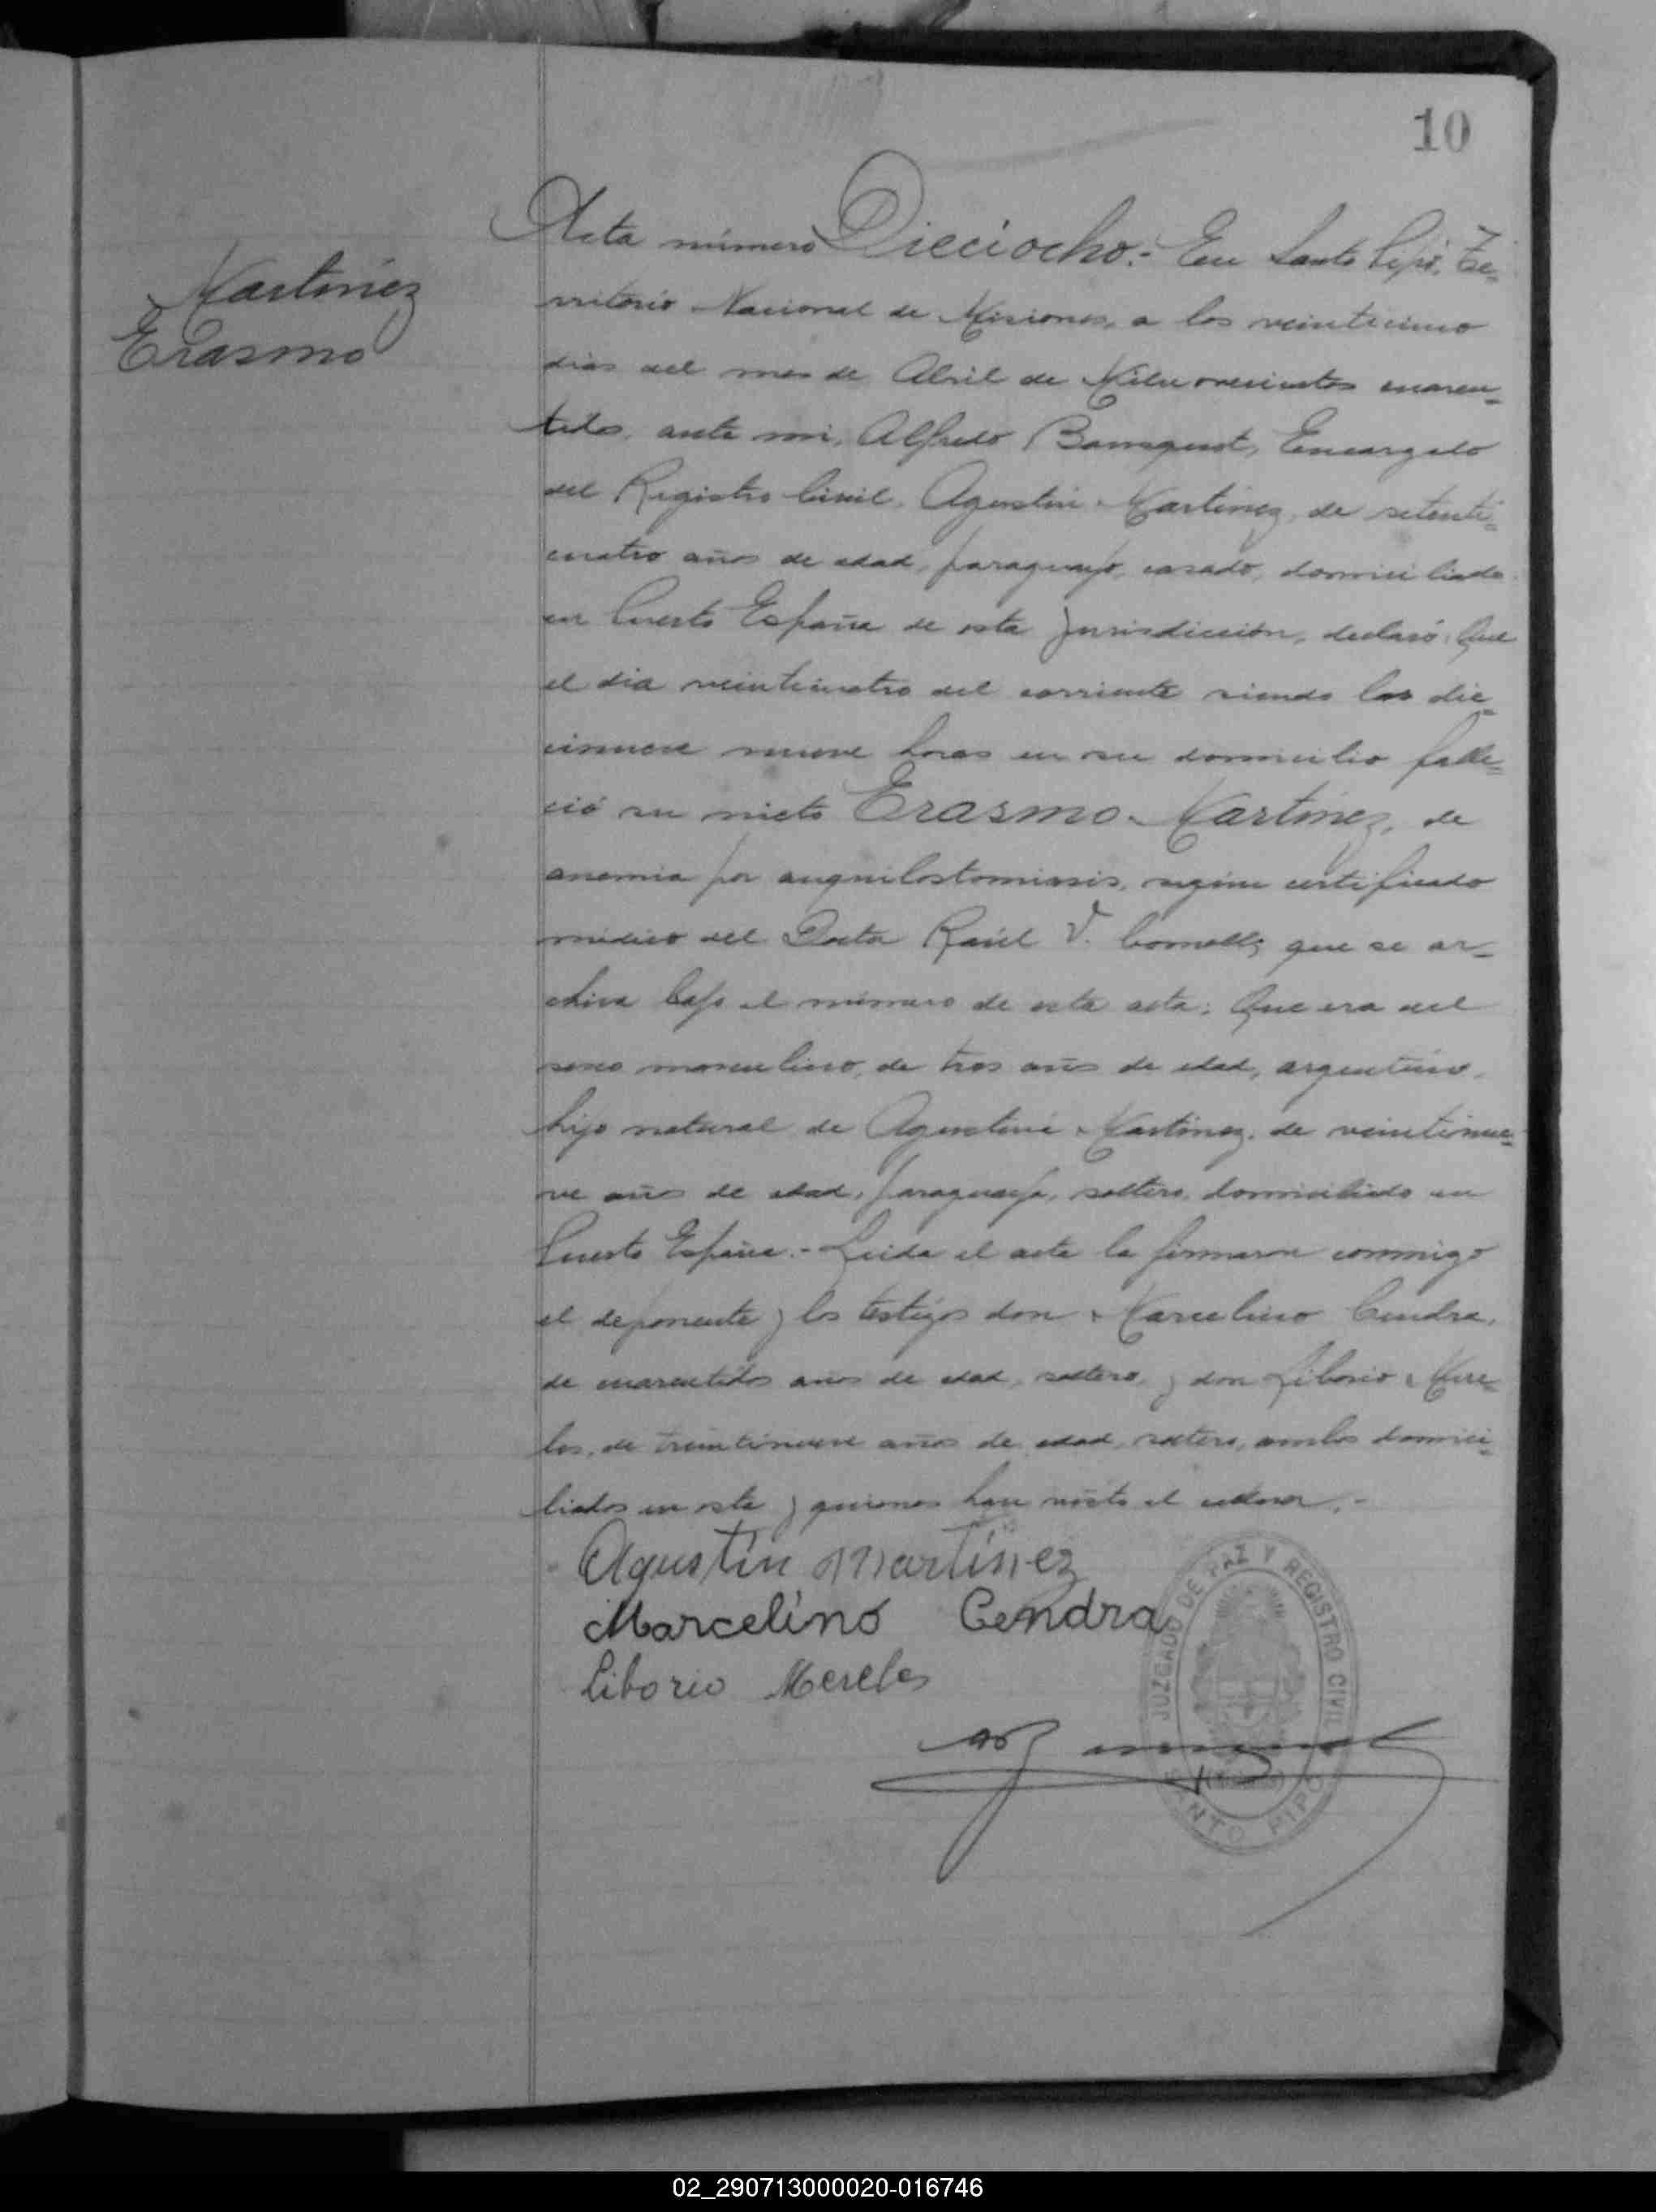 10
Martinez
Erasmo
Acta número Dieciocho.- En Santo Pipó, Te-
rritorio Nacional de Misiones, a los veinticinco
dias del mes de Abril de Mil novecientos cuaren-
tidos, ante mi, Alfredo Encargado
del Registro Civil, Agustin Martinez, de setenti-
cuatro años de edad, paraguayo, casado, domiciliado
en Puerto España de esta jurisdicción, declaró: Que
el dia veinticuatro del corriente siendo las die-
cinueve nueve horas en su domicilio falle-
ció su nieto Erasmo Martinez, de
anemia por anquilostomiasis, según certificado
médico del Doctor Raúl V. que se ar-
chiva bajo el número de esta acta; Que era del
sexo masculino, de tres años de edad, argentino,
hijo natural de Martinez, de veintinue-
ve años de edad, domiciliado en
Puerto España.- Leida el acta la firmaron conmigo
el deponente y los testigos don Marcelino Cendra,
de cuarentidos años de edad, soltero, y don Liborio Mere-
les, de treintinueve años de edad, soltero, ambos domici-
liados en esta y quienes han visto el cadaver.-
Agustin Martinez
Marcelino Cendra
Liborio Mereles
JUZGADO DE PAZ Y REGISTRO CIVIL
SANTO PIPO
02_290713000020-016746